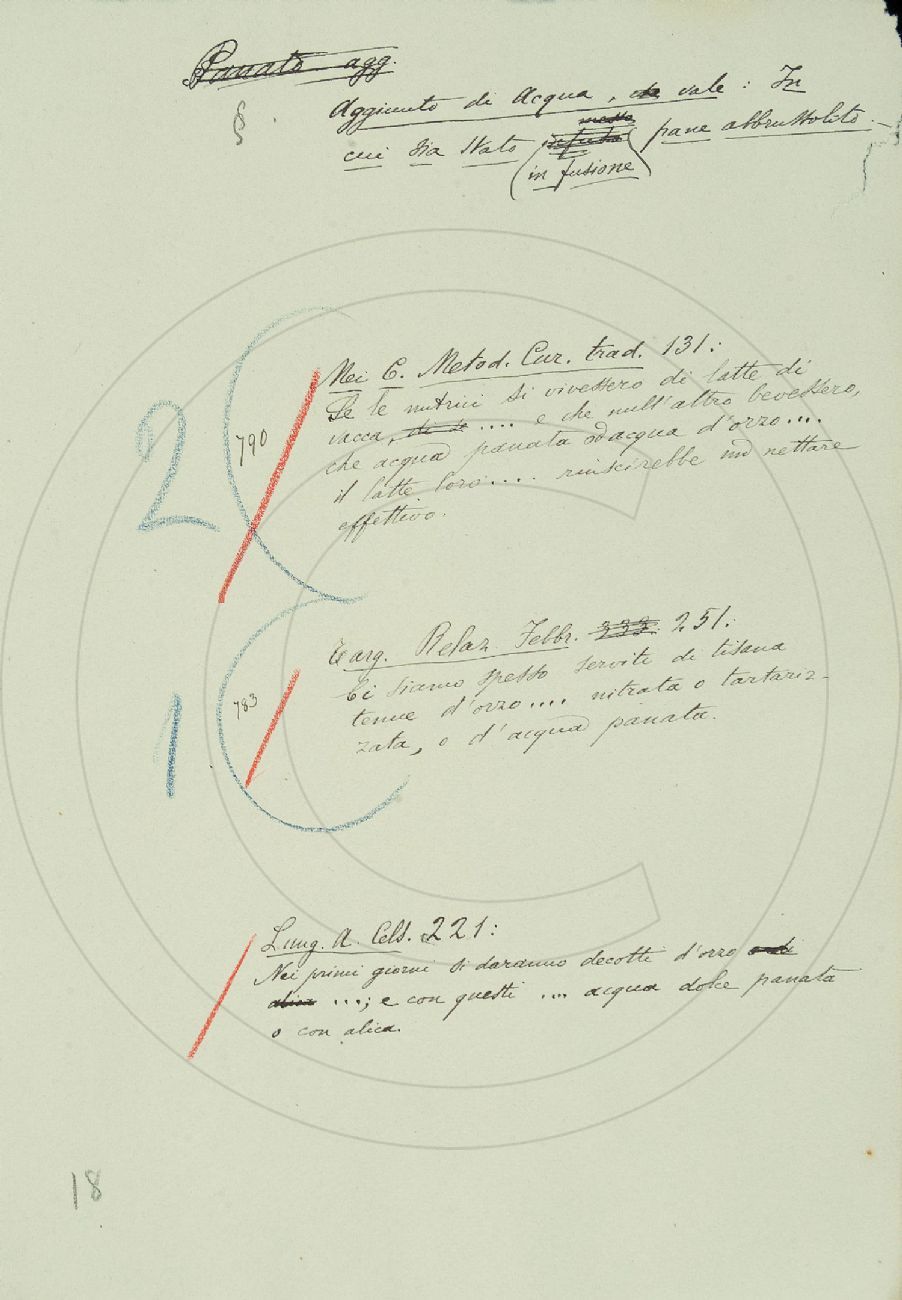 Panato agg.
§. Aggiunto di Acqua, che vale: In
cui sia stato messo infuso pane abbrustolito.—
(in fusione)
Nei G. Metod. Cur. trad. 131:
2 790 Se le nutrici si vivessero di latte di
vacca, .... e che null'altro bevessero,
che acqua panata od acqua d'orzo....
il latte loro.... riuscirebbe un nettare
effettivo.
Targ. Relaz. Febbr. 333 251:
1 783 Ci siamo spesso serviti di tisana
tenue d'orzo.... nitrata o tartariz-
zata, o d'acqua panata.
Lung. A. Cels. 221:
Nei primi giorni si daranno decotti d'orzo o di
alica ...; e con questi ... acqua dolce panata
o con alica.
18
©